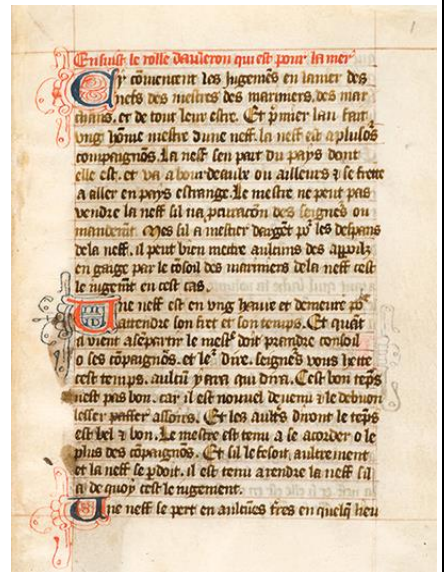 Ensuist le rolle d'auleron qui est pour la mer
Cy cōmencent les jugemēs en la mer des
nefs des mestres des mariniers, des mar
chans, et de tout leur estre. Et pmier lan fait
vng hōme mestre dune neff. la neff est a plusōs
compaignōs. La neff sen part du pays dont
elle est. et va a bourdeaulx ou ailleurs ⁊ se frete
a aller en pays estrange. Le mestre ne peut pas
vendre la neff sil na pcuracōn des seignēs ou
mandemt. Mes sil a mestier dargēt po² les despans
de la neff. il peut bien mettre aulcuns des appilz
en gaige par le cōsoil des mariniers de la neff cest
le iugemt en cest cas.
Une neff est en vng havre et demeure po²
attendre son fret et son temps. Et quāt
a vient a separtir le mestre doit prandre consoil
o ses cōpaignōs. et le² dire. seignēs vous hette
cest temps. aulcū y ara qui dira. Cest bon tēps
nest pas bon. car il est nouuel de venu ⁊ le debuon
lesser passer assoirs. Et les aultres diront le tēps
est bel ⁊ bon. Le mestre est tenu a se acorder o le
plus des cōpaignōs. Et sil le fesoit aultrement
et la neff se pdoit. il est tenu a rendre la neff sil
a de quoy cest le iugement.
Une neff se pert en aulcūes tres en quelq̄ lieu